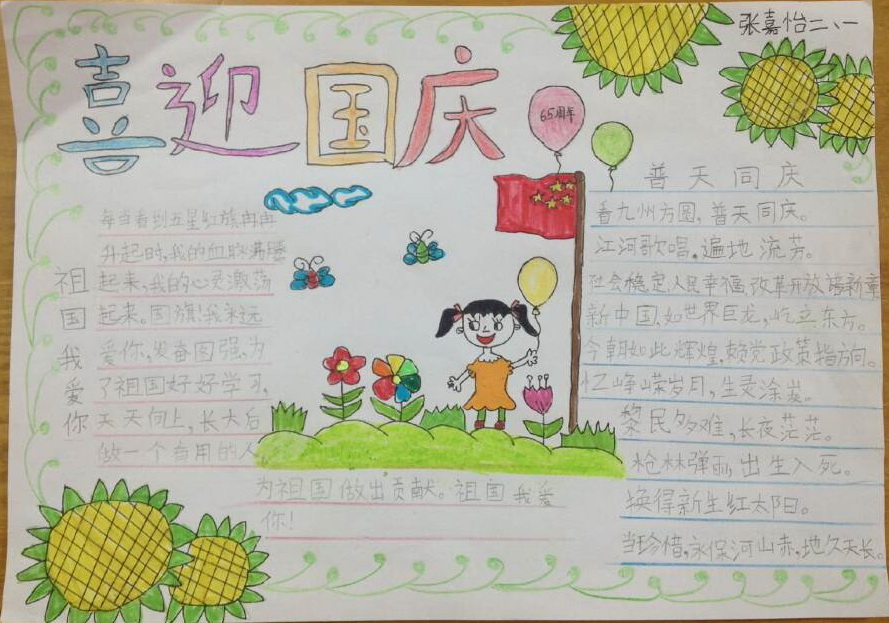 张嘉怡二、一
喜迎国庆
65周年
祖国我爱你
每当看到五星红旗冉冉
升起时,我的血脉沸腾
起来,我的心灵激荡
起来。国旗!我永远
爱你,发奋图强,为
了祖国好好学习,
天天向上,长大后
做一个有用的人
为祖国做出贡献。祖国我爱
你!
普天同庆
看九州方圆,普天同庆。
江河歌唱,遍地流芳。
社会稳定,人民幸福,改革开放谱新章
新中国,如世界巨龙,屹立东方。
今朝如此辉煌,赖党政策指方向。
忆峥嵘岁月,生灵涂炭。
黎民多难,长夜茫茫。
枪林弹雨,出生入死。
换得新生红太阳。
当珍惜,永保河山赤,地久天长。